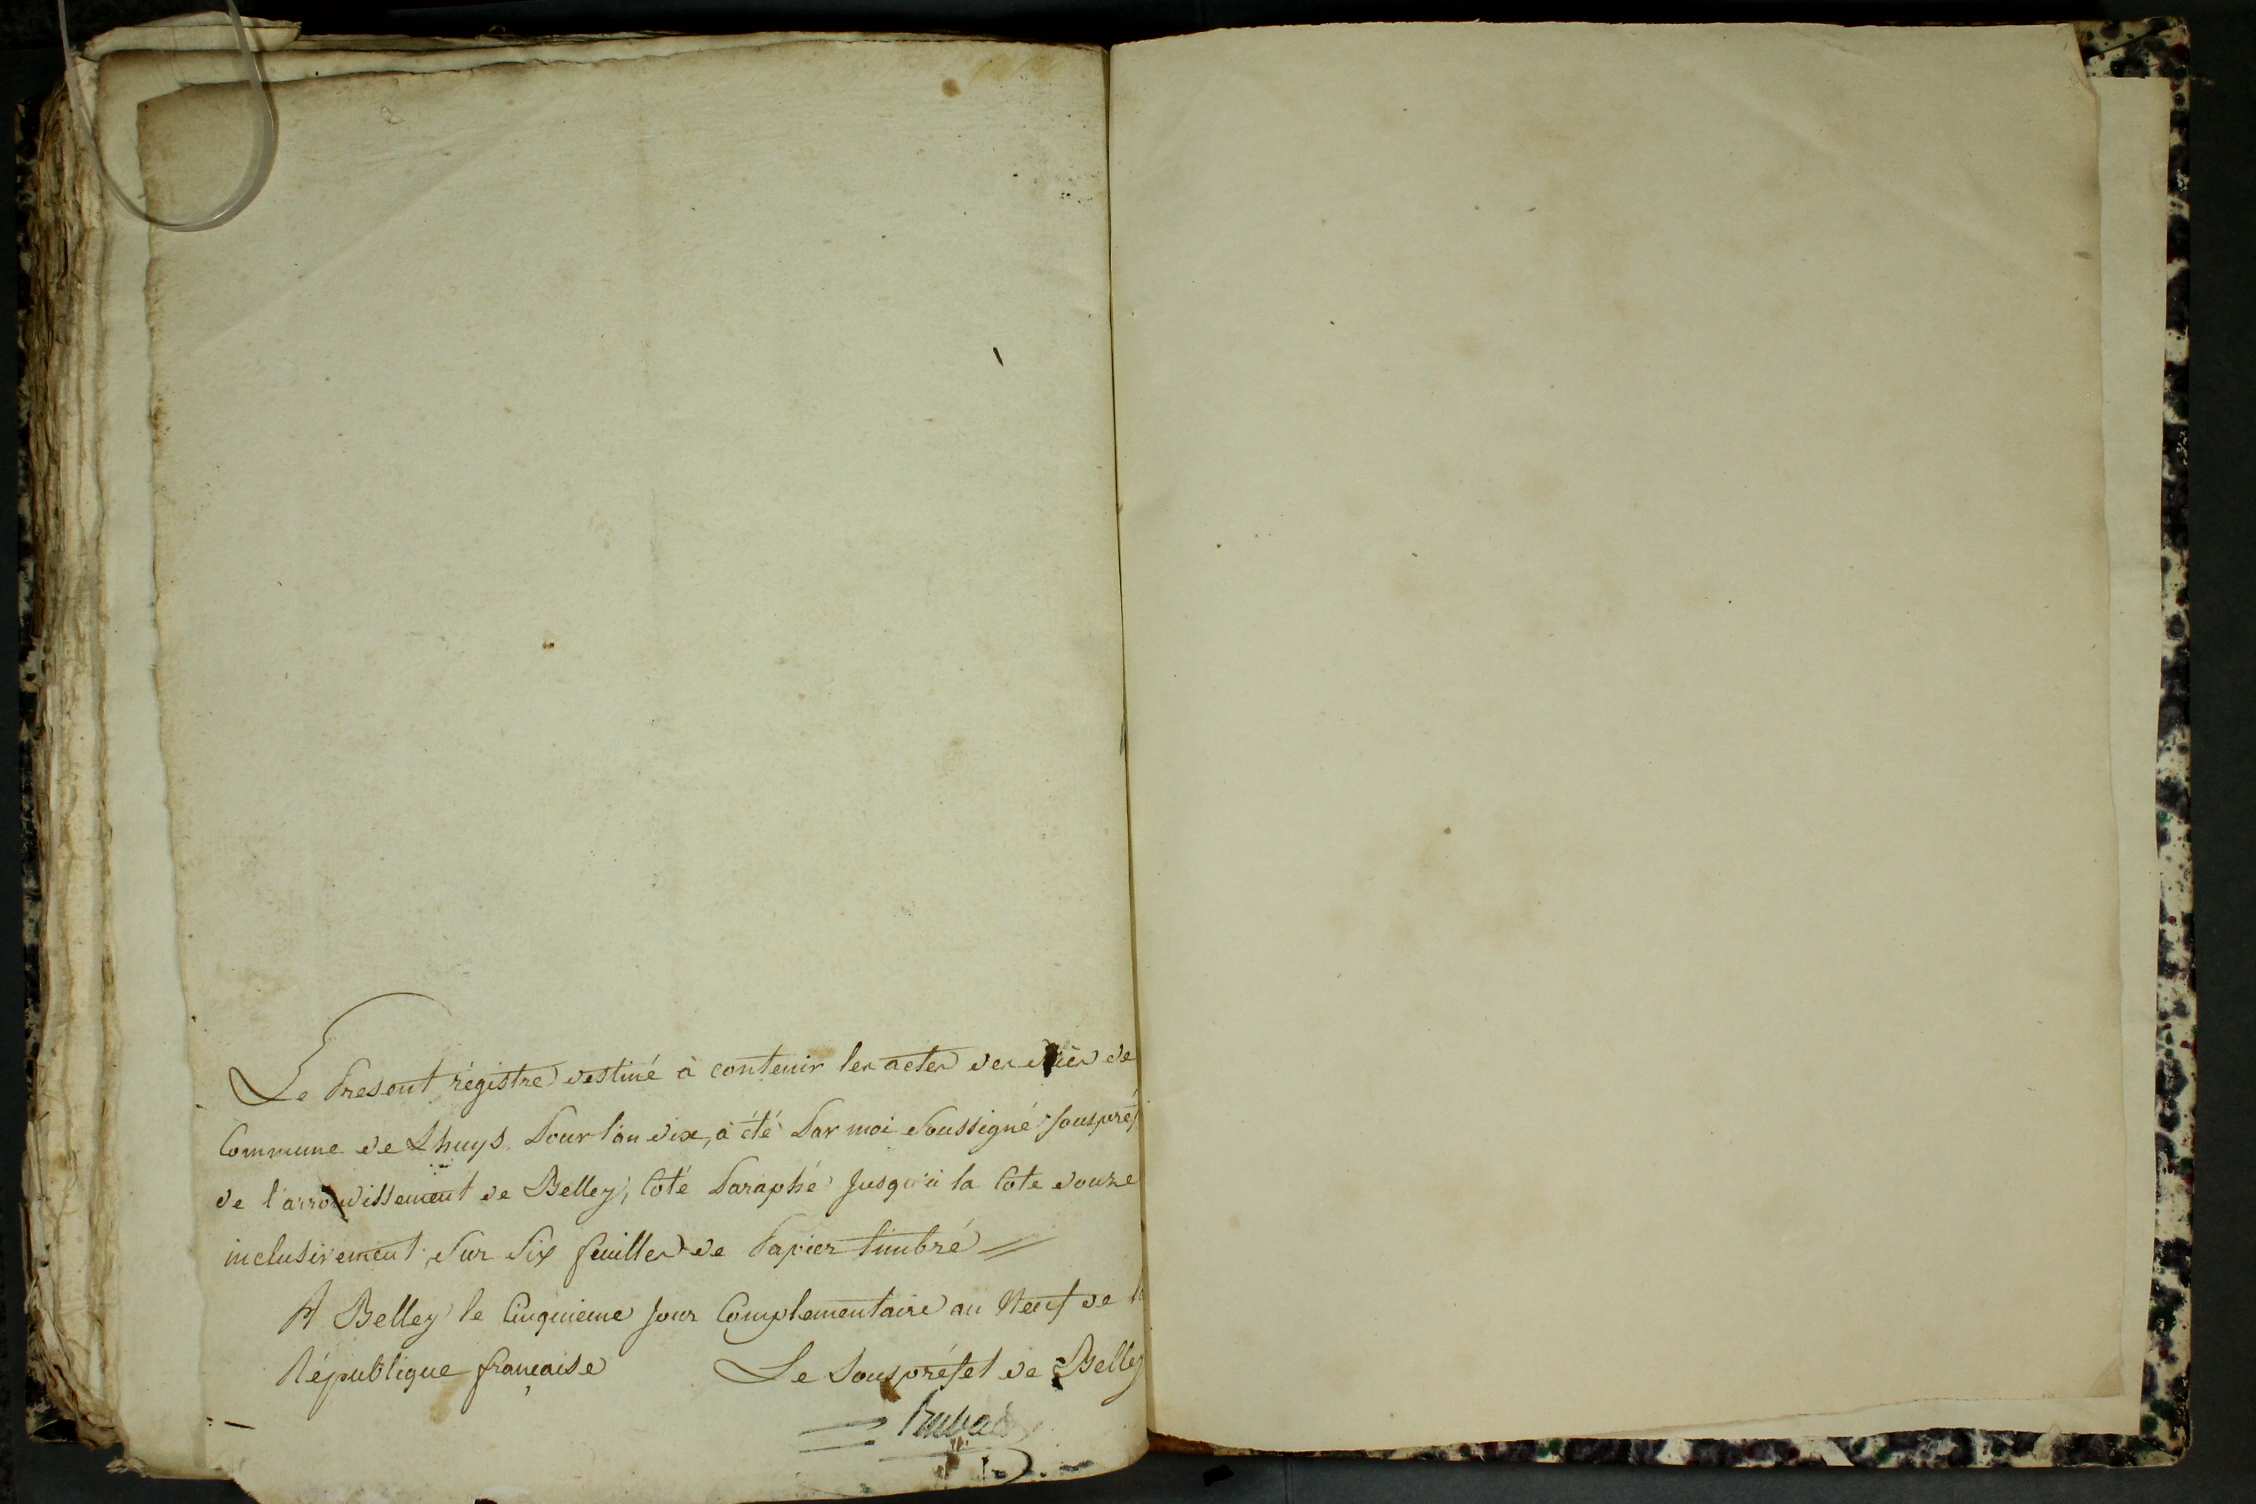 Le Present régistre destiné à contenir les actes de décès de
Commune de Lhuys. Pour l'an dix, a été Par moi Soussigné Souspréf
de l'arrondissement de Belley, Coté Paraphé Jusqu'à la Cote douze
inclusivement, Sur Six feuilles de Papier timbré
A Belley le Cinquieme Jour Complementaire an Neuf de la
République française Le Souspréfet de Belley